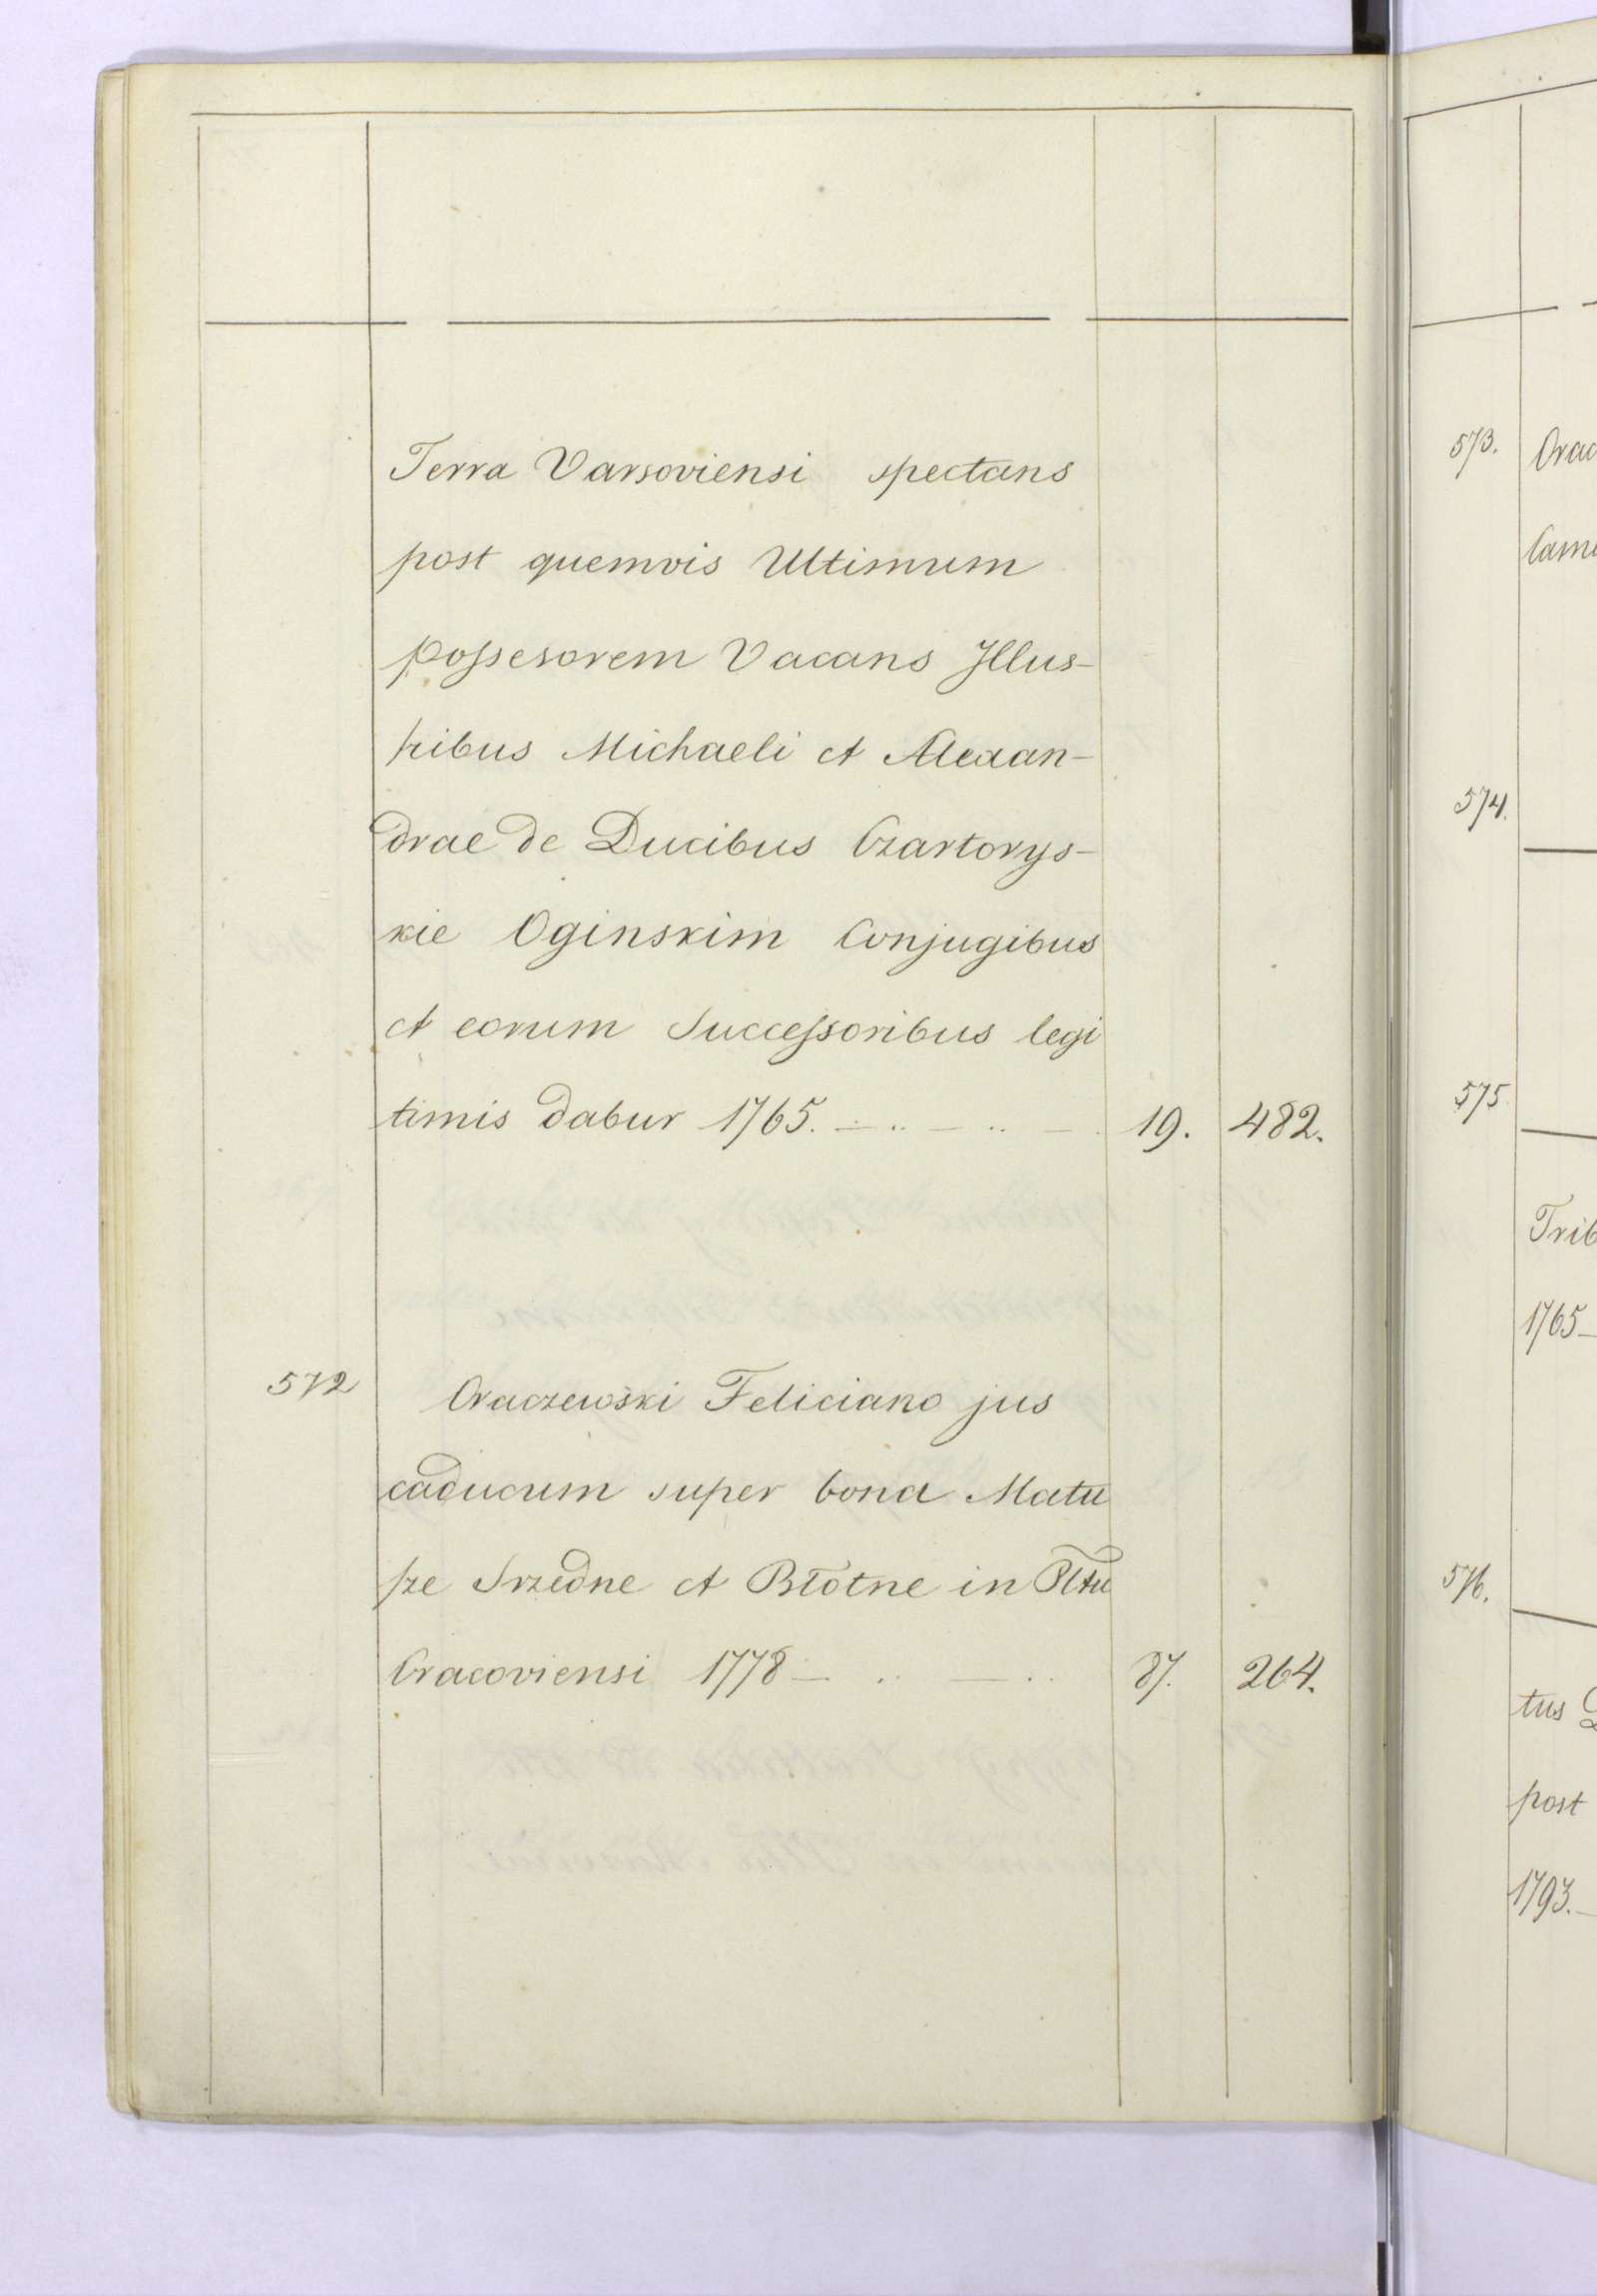 Terra Varsoviensi spectans
post quemvis Ultimum
possesorem Vacans Illus-
tribus Michaeli et Alexan-
drae de Ducibus Czartorys-
kie Oginskim Conjugibus
et eorum Successoribus legi
timis dabur 1765. 19. 482.
572 Oraczewski Feliciano jus
caducum super bona Matu
sze Srzedne et Błotne in Pltu
Cracoviensi 1778 — 87. 264.
573. Orac
Came
574.
575
Trib
1765 —
576.
tus
post
1793. —